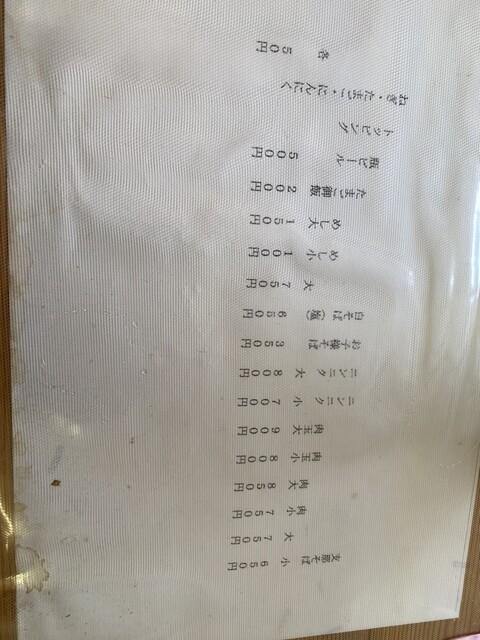 支那そば 小 650円
大 750円
肉 小 750円
肉 大 850円
肉玉 小 800円
肉玉 大 900円
ニンニク 小 700円
ニンニク 大 800円
お子様そば 350円
白そば（塩） 650円
大 750円
めし 小 100円
めし 大 150円
たまご御飯 200円
瓶ビール 500円
トッピング
ねぎ・たまご・にんにく
各 50円